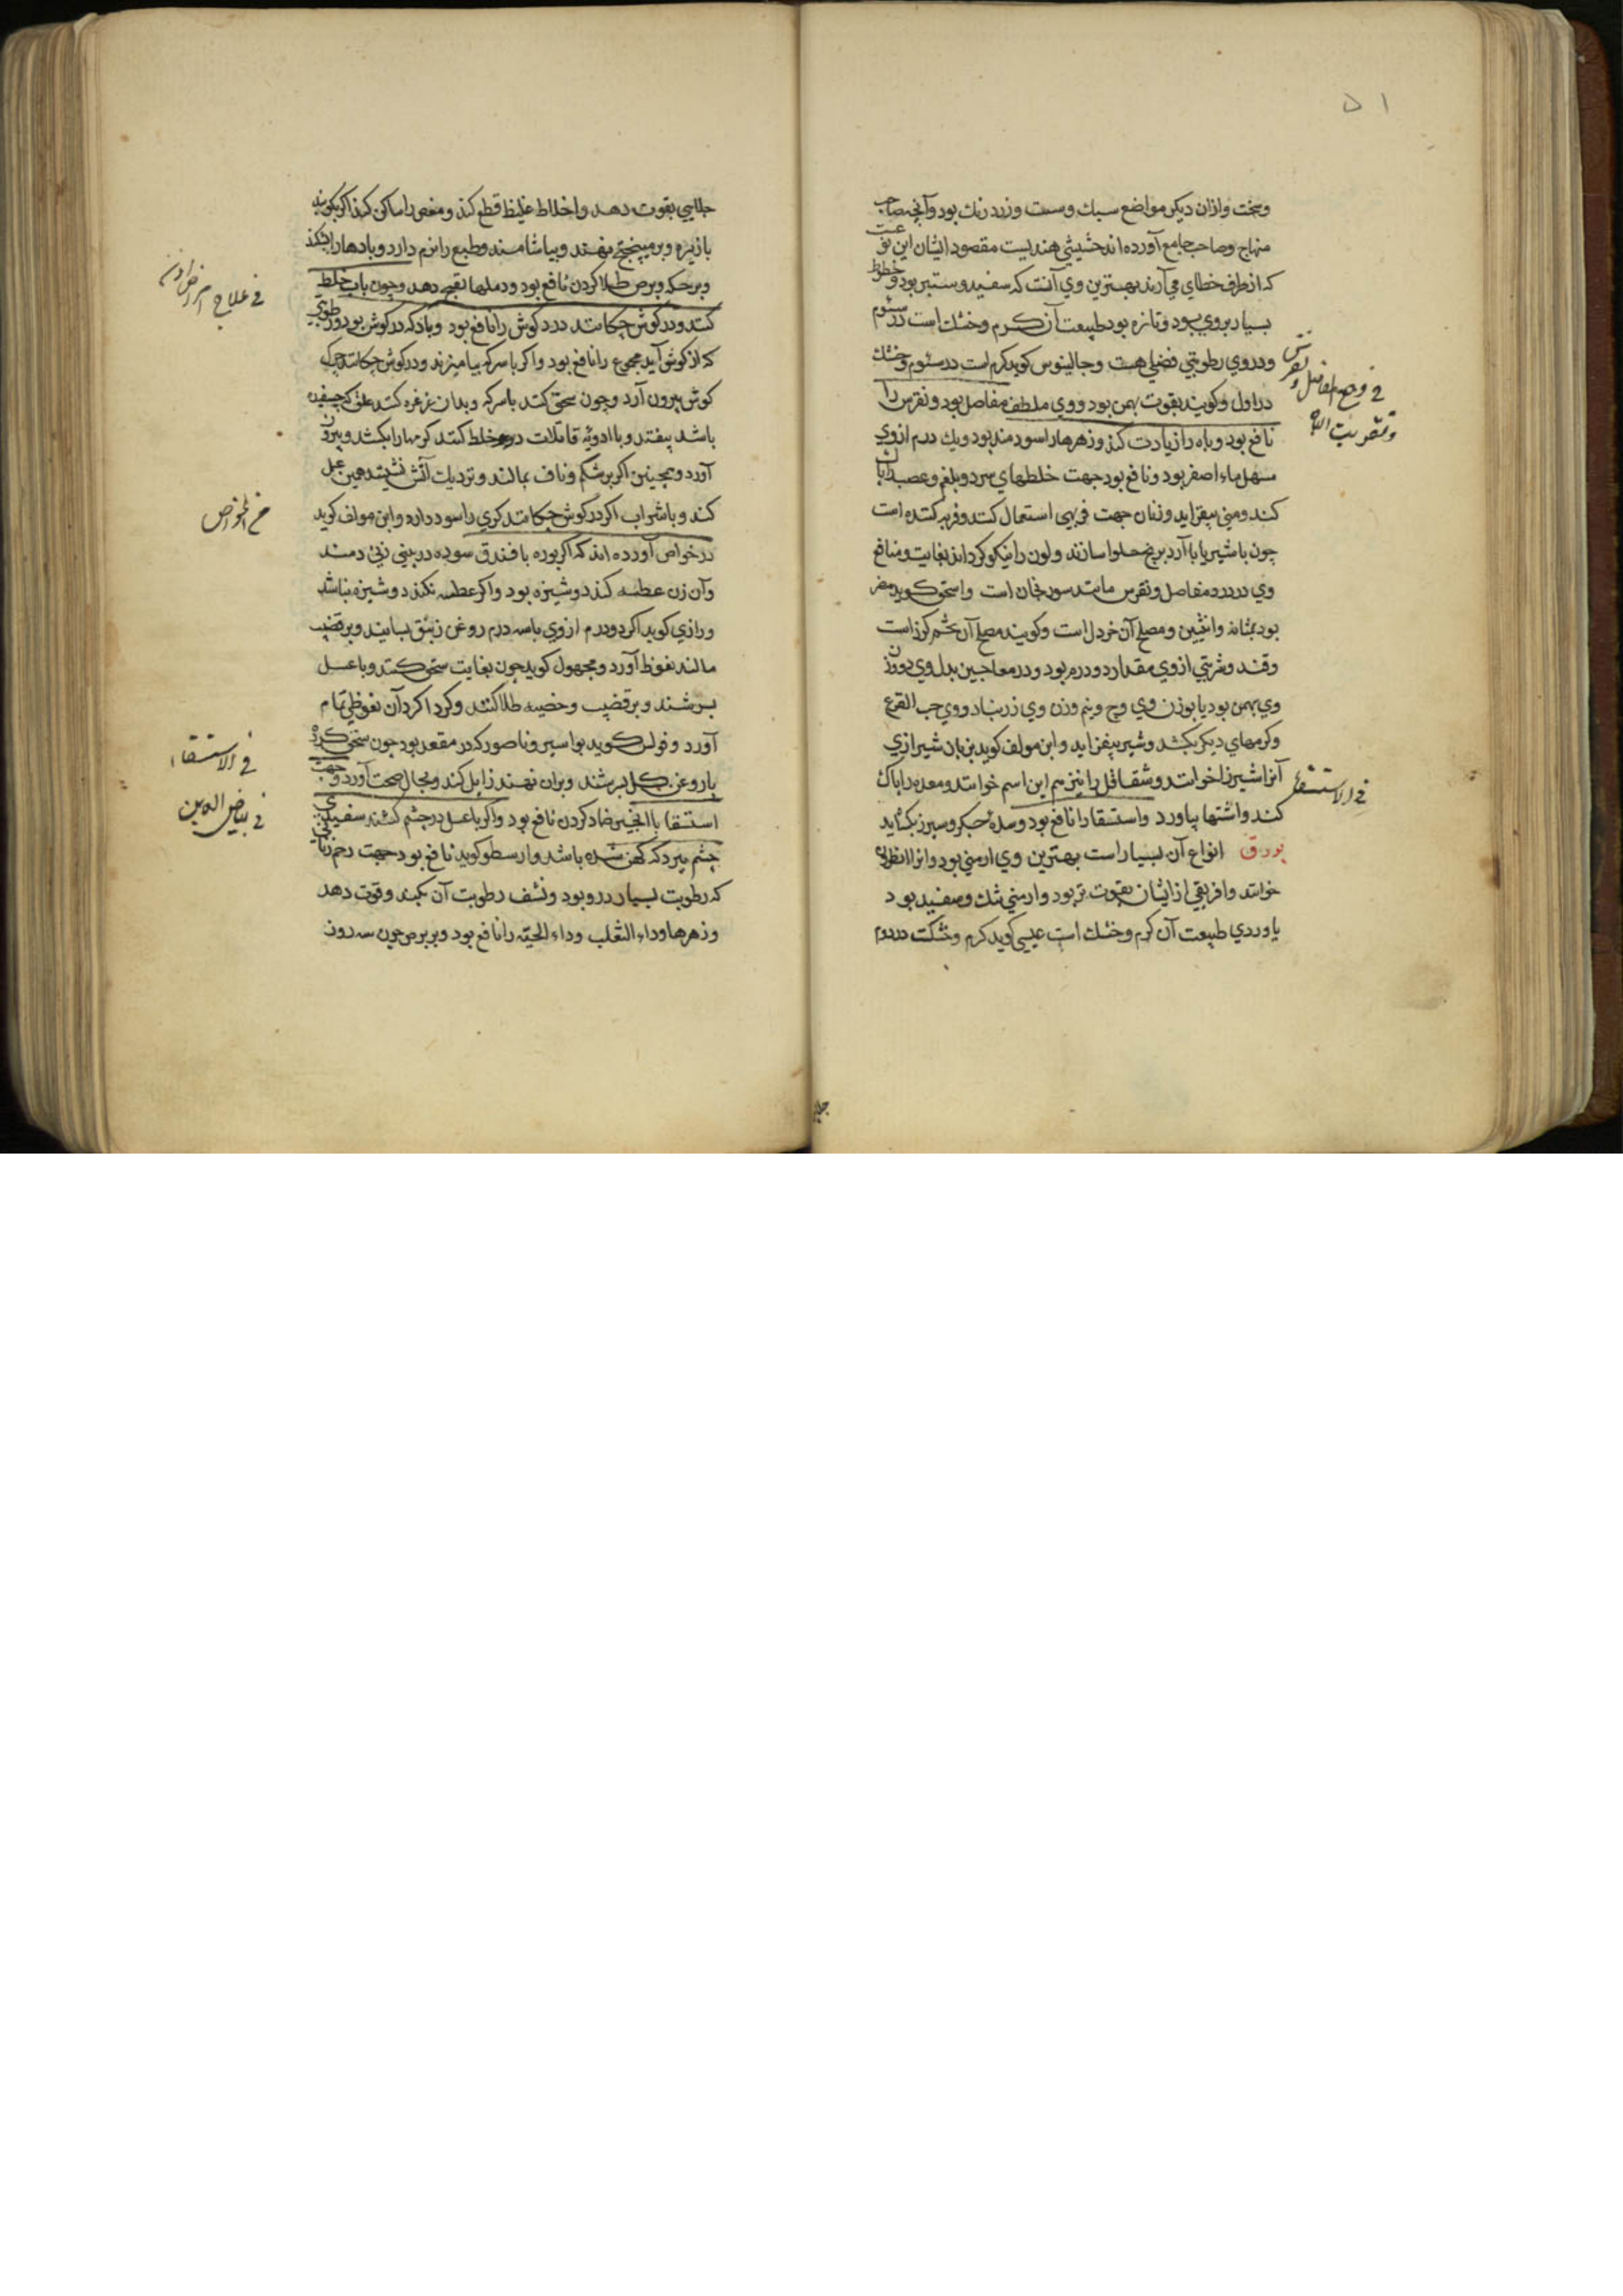 ۵۱
وسخت وازان دیکر مواضع سبك وسست وزرد رنك بود وآنچه صاحب
منهاج وصاحب جامع آورده اند خشیشی هندیست مقصود ایشان این نوعست
که از طرف خطای می آرند بهترین وی آنست که سفید وستبر بود وخطوط
بسیار بروی بود وتازه بود طبیعت آن کرم وخشك است در سئوم
ودروی رطوبتی فضلی هست وجالینوس کوید کرم است در سئوم وخشك
در اول وکویند بقوت بهمن بود ووی ملطف مفاصل بود ونقرس را
نافع بود وباه را زیادت کند وزهرها را سودمند بود ویك درم ازوی
مسهل ماء اصفر بود ونافع بود جهت خلطهای سرد وبلغم وعصب را پاك
کند ومنی بیفزاید وزنان جهت فربهی استعمال کنند وفربه کننده است
چون با شیر یا با آرد برنج حلوا سازند ولون را نیکو کرداند بغایت ومنافع
وی در درد مفاصل ونقرس مانند سورنجان است واسحق کوید مضر
بود بمثانه وانثیین ومصلح آن خردل است وکویند مصلح آن تخم کرفس است
وقند وشربتی ازوی مقدار دو درم بود ودر معاجین بدل وی دو وزن
وی بهمن بود یا بوزن وی وج ونیم وزن وی زرنباد ووی حب القرع
وکرمهای دیکر بکشد وشیر بیفزاید وابن مولف کوید بزبان شیرازی
آنرا شیرزا خوانند وشقاقل را نیز هم این اسم خوانند ومعده را پاك
کند واشتها بیاورد واستسقا را نافع بود وسده جکر وسپرز بکشاید
بورق انواع آن بسیار است بهترین وی ارمنی بود وانرا انطرون
خوانند وافریقی ازایشان بقوت تر بود وارمنی تنك وسفید بود
یا وردی طبیعت آن کرم وخشك است عیسی کوید کرم وخشکست در دوم
فی وجع المفاصل ونقرس
وتقویت الباه
فی الاستسقاء
جلایی بقوت دهد واخلاط غلیظ قطع کند ومغص را ساکن کند اکر بکوبند
با زیره وبر میپختج نهند وبیاشامند وطبع را نرم دارد وبادها را بشکند
وبر حکه وبرص طلا کردن نافع بود ودملها نضج دهد وچون باب خلط
کنند ودر کوش چکانند درد کوش را نافع بود وبادکه در کوش بود ورطوبتی
که از کوش آید مجموع را نافع بود واکر با سرکه بیامیزند ودر کوش چکانند چرك
کوش بیرون آرد وچون سحق کنند با سرکه وبدان غرغره کنند علق که چسفیده
باشد بیفتد وبا ادویه قاتلات خلط کنند کرمها را بکشد وبیرون
آورد وهمچنین اکر بر شکم وناف بمالند ونزدیك آتش نشینند همین عمل
کند وبا شراب اکر در کوش چکانند کری را سود دارد وابن مولف کوید
در خواص آورده اند که اکر بوره با فندق سوده در بینی زنی دمند
وآن زن عطسه کند دوشیزه بود واکر عطسه نکند دوشیزه نباشد
ورازی کوید اکر دو درم ازوی با سه درم روغن زنبق بسایند وبر قضیب
مالند نعوظ آورد ومجهول کوید چون بغایت سحق کنند وبا عسل
بسرشند وبر قضیب وخصیه طلا کنند وکرداکرد آن نعوظی تمام
آورد وفولس کوید بواسیر وناصور که در مقعد بود چون سحق کرده
با روغن کل بسرشند وبران نهند زایل کند وبحال صحت آورد وجهت
استسقا با انجیر ضماد کردن نافع بود واکر با عسل در چشم کشند سفیدی
چشم ببرد که کهن شده باشد وارسطو کوید نافع بود جهت رحم زنانی
که رطوبت بسیار درو بود ونشف رطوبت آن بکند وقوت دهد
وزهرها وداء الثعلب وداء الحیة را نافع بود وبر برص چون سه روز
فی علاج امراض اذن
من الخواص
فی الاستسقاء
فی بیاض العین
جلا